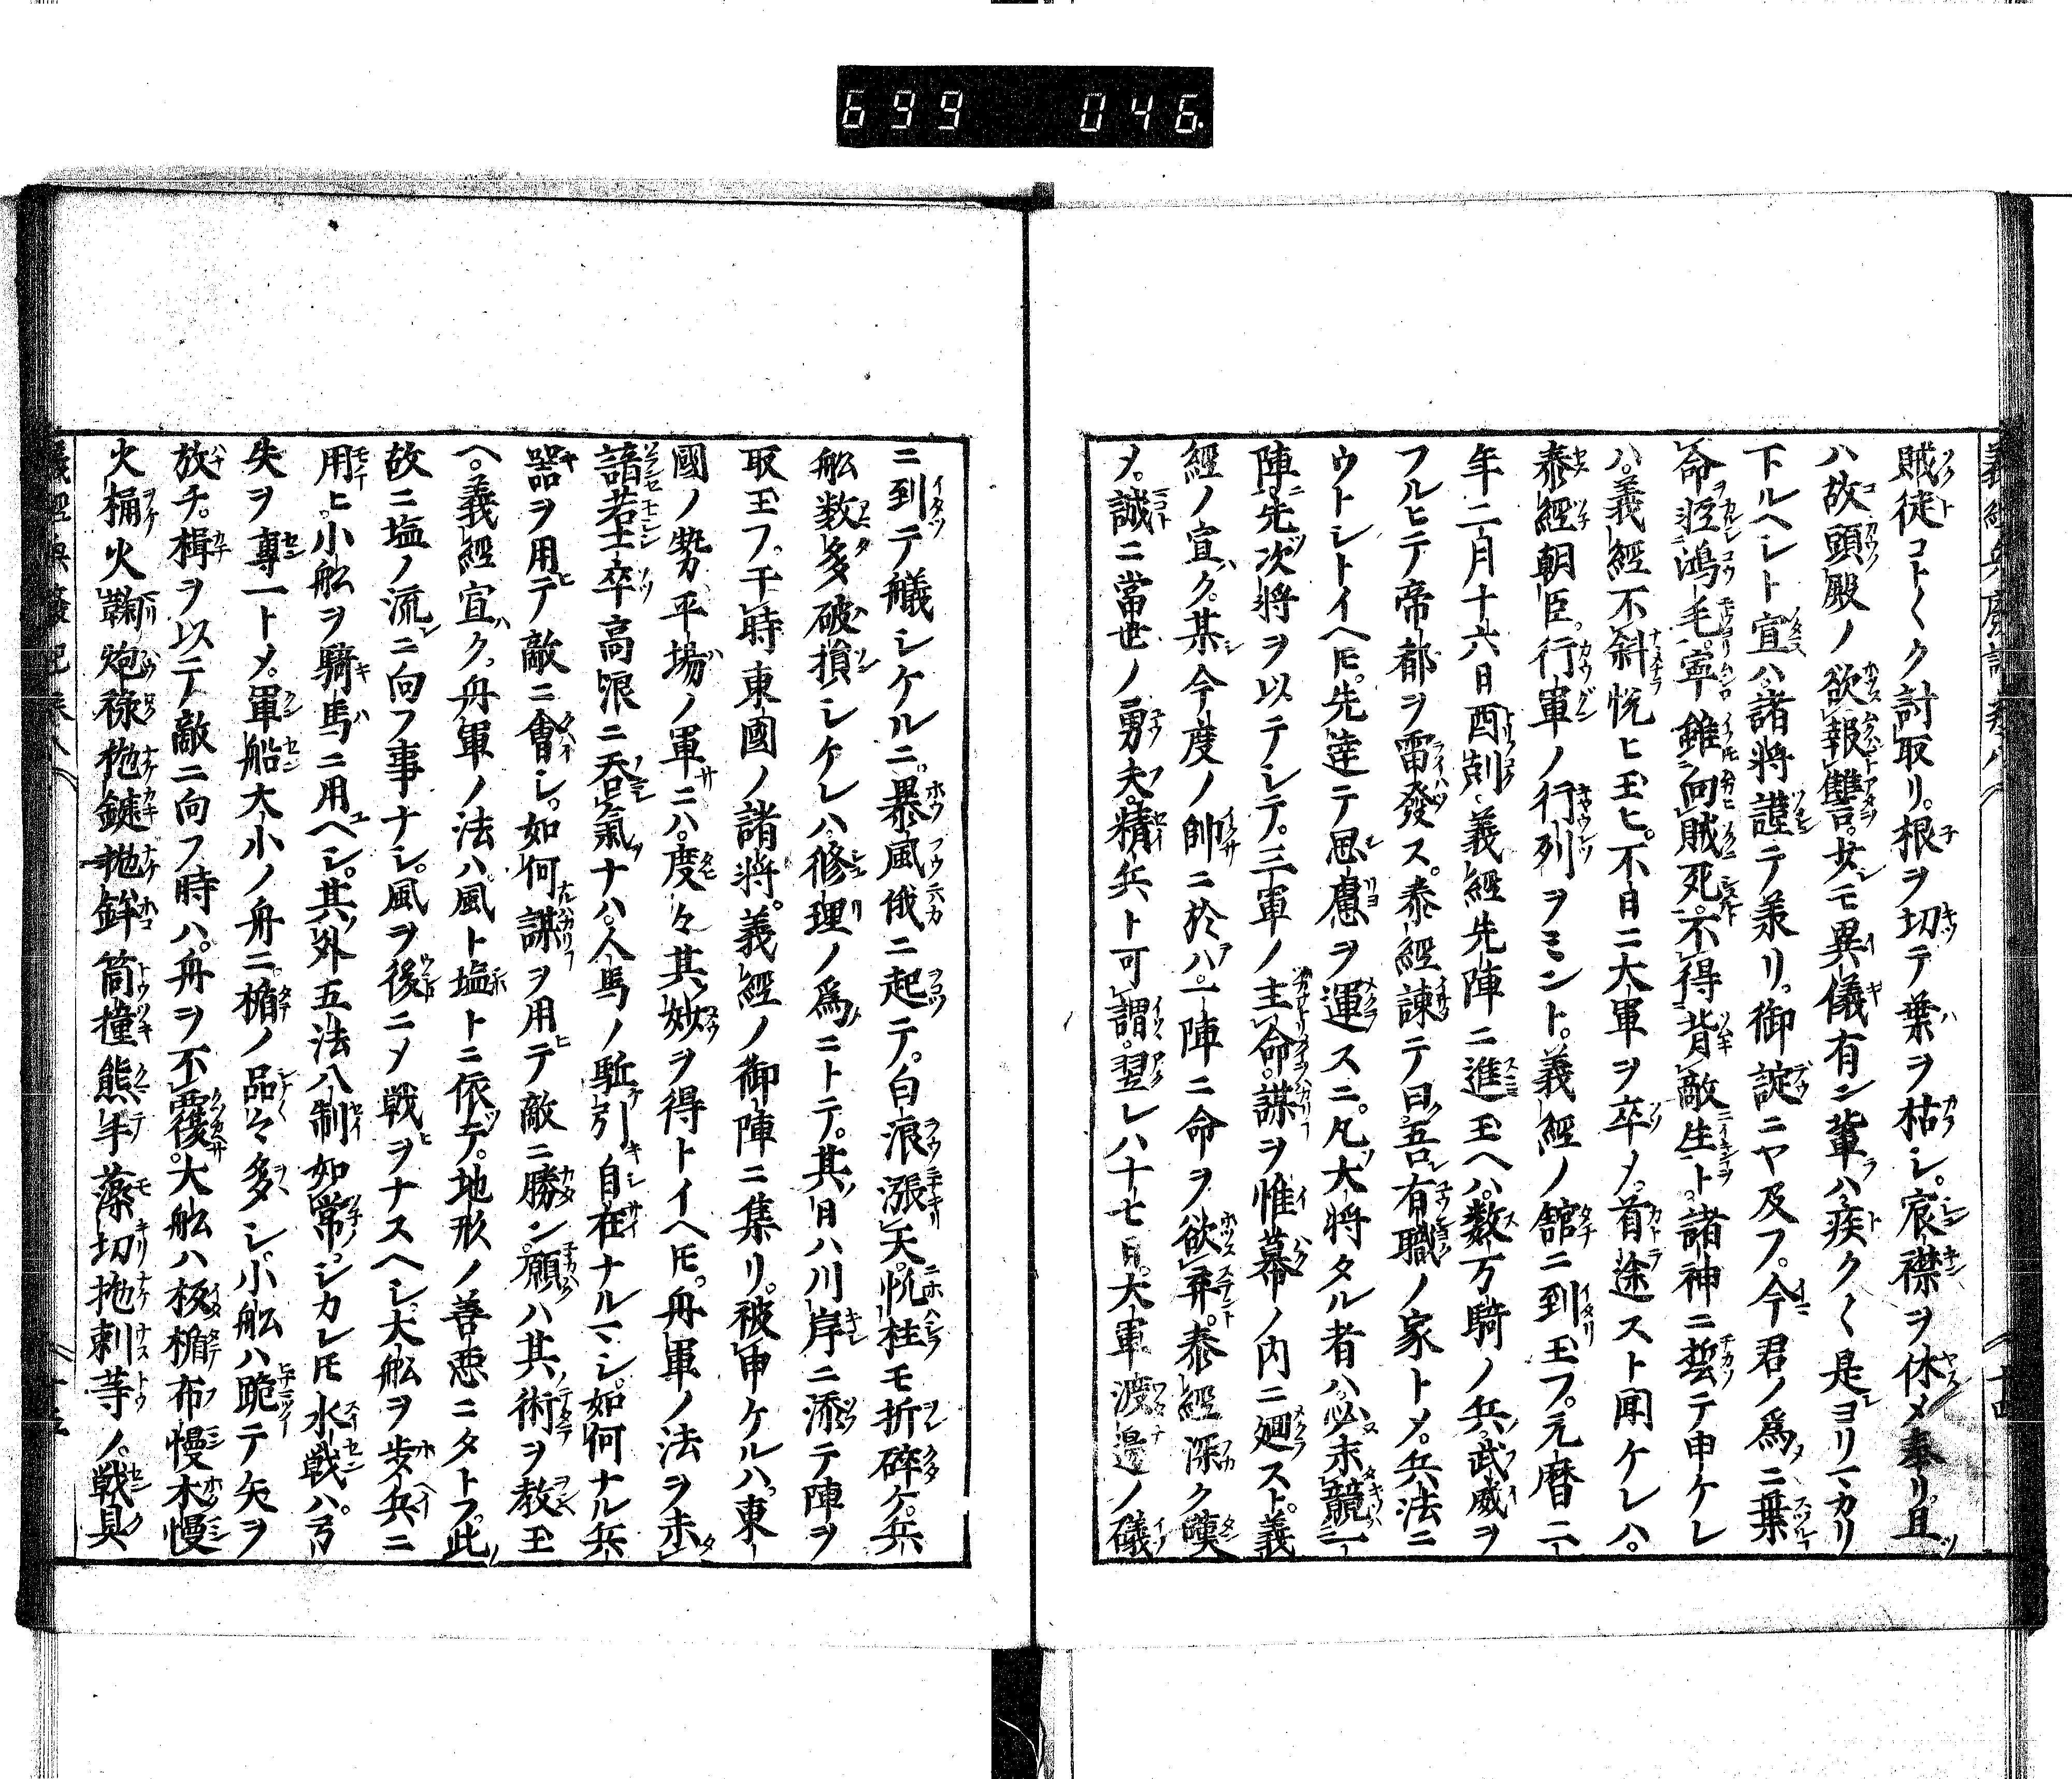 699 046
賊徒コト〱ク討取リ。根ヲ切テ葉ヲ枯シ。宸襟ヲ休メ奉リ。且
ハ故頭殿ノ欲報讐。少モ異儀有ン輩ハ疾ク〱是ヨリ罷カリ
下ルヘシト宣ハ諸将謹テ羕リ。御諚ニヤ及フ。今君ノ爲ニ棄
命軽鴻毛。寧錐向賊死。不得背敵生ト。諸神ニ誓テ申ケレ
ハ。義經不斜悦ヒ玉ヒ。不日ニ大軍ヲ卒メ。首途スト聞ケレハ。
泰經朝臣。行軍ノ行列ヲミント。義經ノ舘ニ到玉フ。元暦二
年二月十六日酉剋義經先陣ニ進玉ヘハ。数万騎ノ兵。武威ヲ
フルヒテ帝都ヲ雷發ス。泰經諌テ曰。吾有職ノ家トメ。兵法ニ
ウトシトイヘ𪜈。先達テ思慮ヲ運スニ。凡大将タル者ハ必未競一
陣。先次将ヲ以テシテ。三軍ノ主命。謀ヲ惟幕ノ内ニ廻スト。義
經ノ宣ク。某今度ノ帥ニ於ハ。一陣ニ命ヲ欲弃。泰經深ク嘆
メ。誠ニ當世ノ勇夫。精兵ト可謂。翌レハ十七日。大軍渡邉ノ礒
ニ到テ艤シケルニ。暴風俄ニ起テ。白浪漲天。帆柱モ折碎ケ。兵
舩数多破損シケレハ。修理ノ爲ニトテ。其日ハ川岸ニ添テ陣ヲ
取玉フ。于時東國ノ諸将。義經ノ御陣ニ集リ。被申ケルハ。東
國ノ勢平塲ノ軍ニハ。度々其妙ヲ得トイヘ𪜈。舟軍ノ法ヲ未
諳。若士卒高浪ニ呑氣ナハ。人馬ノ駈引自在ナルマシ。如何ナル兵
器ヲ用テ敵ニ會シ。如何謀ヲ用テ敵ニ勝ン。願ハ其術ヲ教玉
ヘ。義經宣ク。舟軍ノ法ハ。風ト塩トニ依テ。地形ノ善悪ニタトフ。此
故ニ塩ノ流ニ向フ事ナシ。風ヲ後ニメ戦ヲナスヘシ。大舩ヲ歩兵ニ
用ヒ。小舩ヲ騎馬ニ用ヘシ。其外五法八制如常。シカレ𪜈水戦ハ。弓
矢ヲ專一トメ。軍船大小ノ舟ニ。楯ノ品々多シ。小舩ハ跪テ矢ヲ
放チ。楫ヲ以テ敵ニ向フ時ハ。舟ヲ不覆。大舩ハ板楯布幔木幔
火桶火鞠炮禄抛鎌抛鉾筒撞熊手藻切抛刺等ノ。戦具